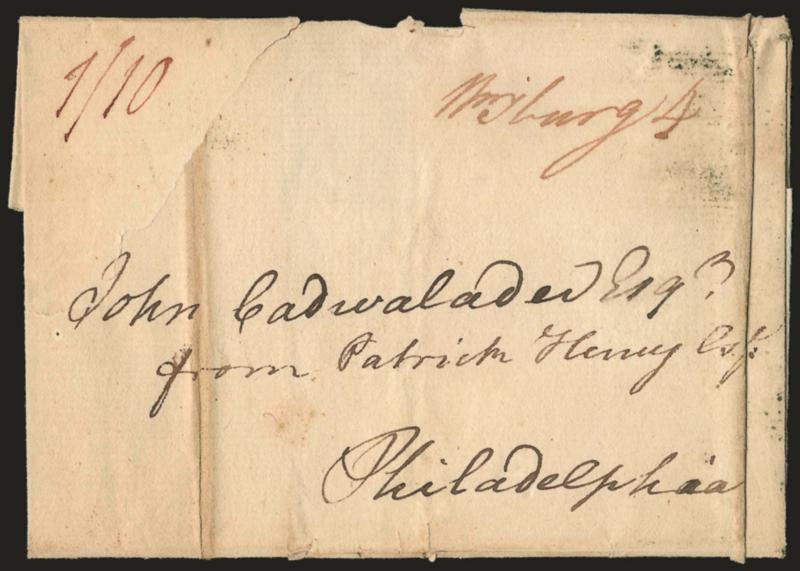 1/10
Wmsburg 4
John Cadwalader Esqr.
from Patrick Henry Esqr.
Philadelphia